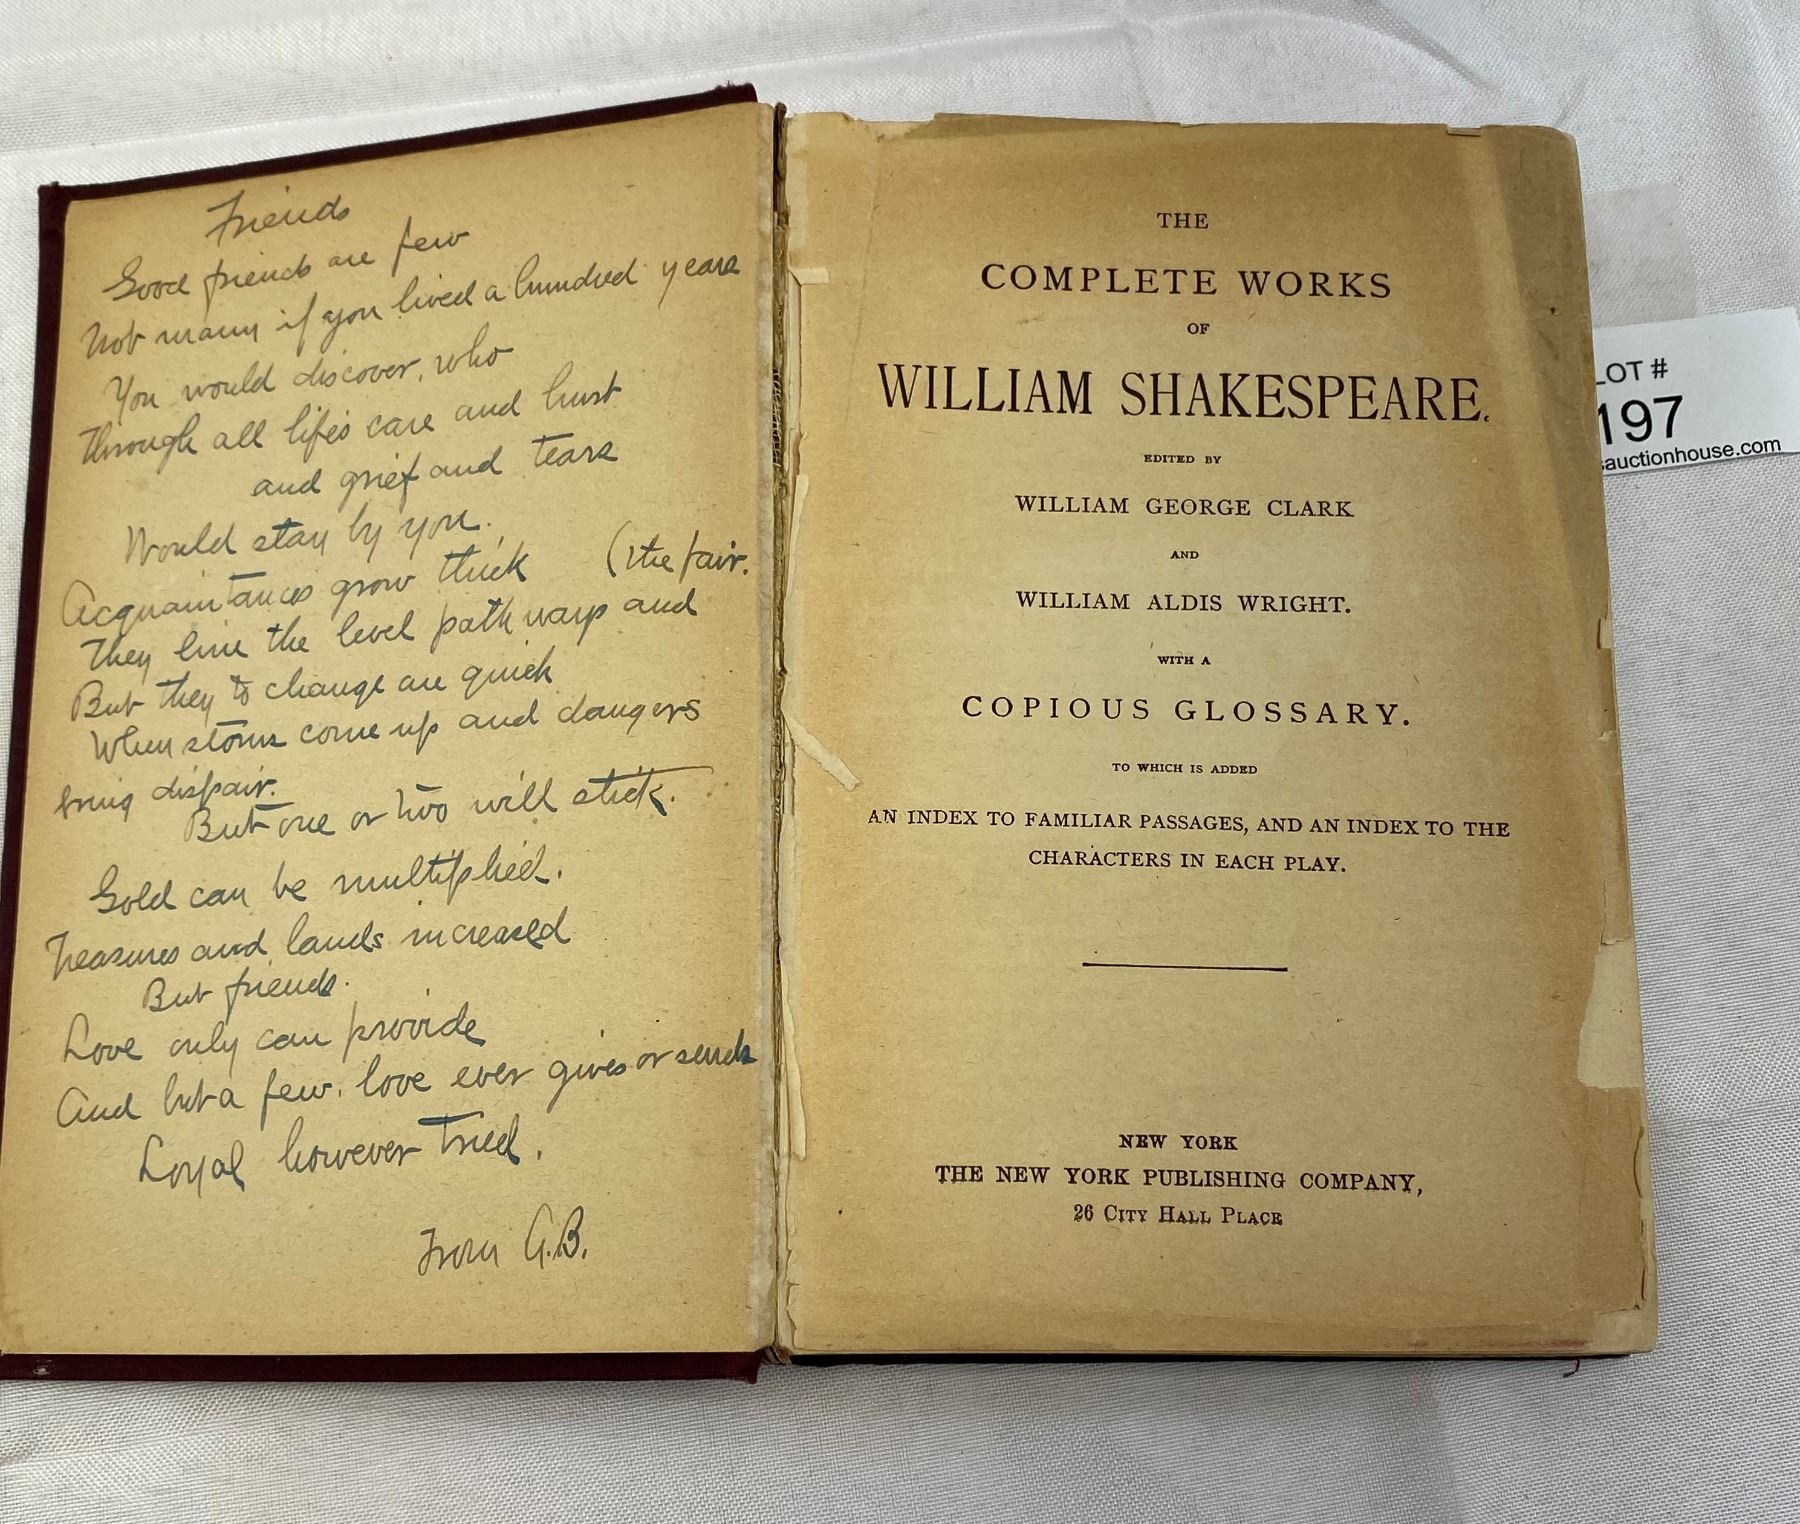 Friends
Good friends are few
Not many if you lived a hundred years
You would discover, who
Through all life's care and hurt
and grief and tears
Would stay by you.
Acquaintances grow thick (the fair.
They line the level pathways and
But they to change are quick
When storms come up and dangers
bring dispair.
But one or two will stick.
Gold can be multiplied.
Treasures and lands increased
But friends.
Love only can provide
And but a few. love ever gives or sends
Loyal however tried.
From G.B.
THE
COMPLETE WORKS
OF
WILLIAM SHAKESPEARE.
EDITED BY
WILLIAM GEORGE CLARK
AND
WILLIAM ALDIS WRIGHT.
WITH A
COPIOUS GLOSSARY.
TO WHICH IS ADDED
AN INDEX TO FAMILIAR PASSAGES, AND AN INDEX TO THE
CHARACTERS IN EACH PLAY.
NEW YORK
THE NEW YORK PUBLISHING COMPANY,
26 CITY HALL PLACE
LOT #
197
sauctionhouse.com